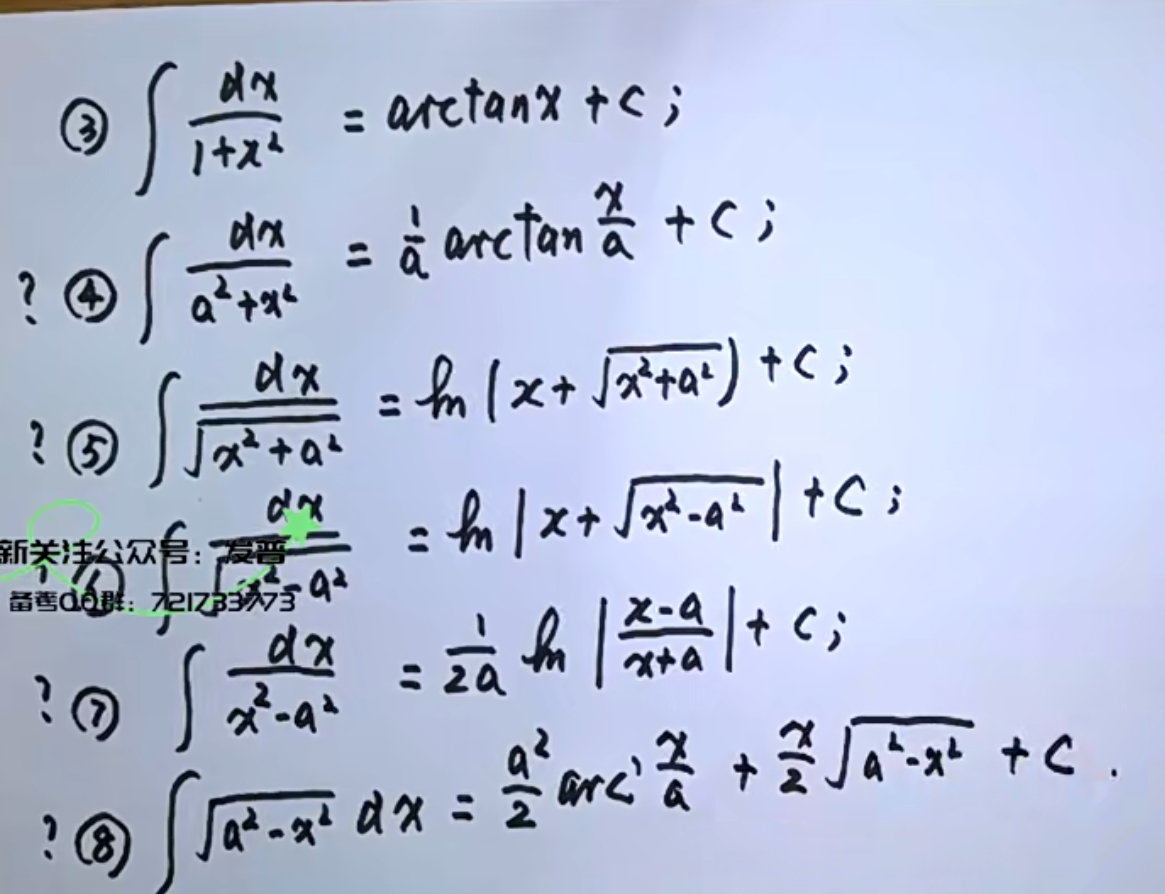 ③ ∫ dx/(1+x²) = arctanx + C ;
? ④ ∫ dx/(a²+x²) = 1/a arctan x/a + C ;
? ⑤ ∫ dx/√(x²+a²) = ln (x+√(x²+a²)) + C ;
? ⑥ ∫ dx/√(x²-a²) = ln |x+√(x²-a²)| + C ;
新关注公众号：发普
备考QQ群：721733773
? ⑦ ∫ dx/(x²-a²) = 1/2a ln |(x-a)/(x+a)| + C ;
? ⑧ ∫ √(a²-x²) dx = a²/2 arc' x/a + x/2 √(a²-x²) + C .